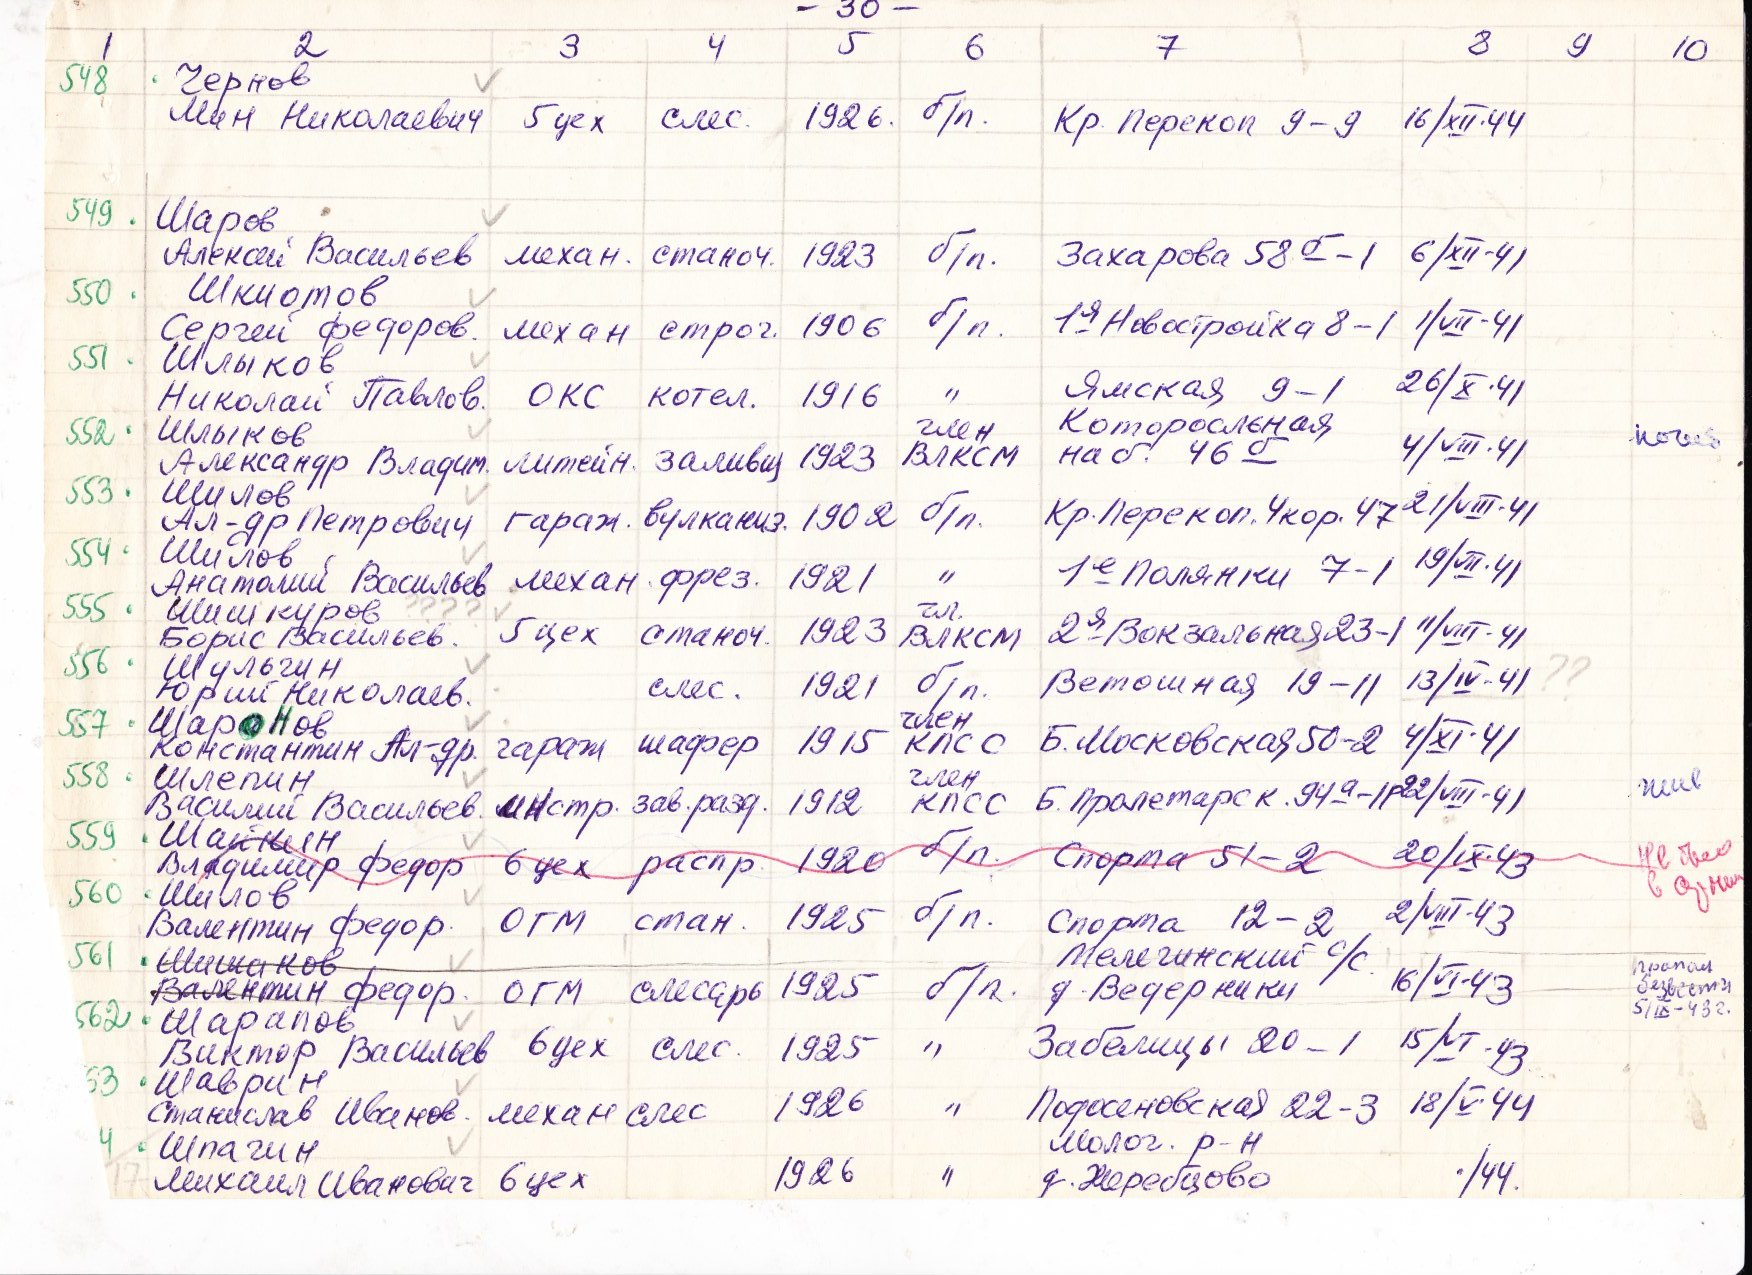 - 30 -
1 2 3 4 5 6 7 8 9 10
548 · Чернов
Мин Николаевич 5 цех слес. 1926. б/п. Кр. Перекоп 9-9 16/XII-44
549 · Шаров
Алексей Васильев механ. станоч. 1923 б/п. Захарова 58 б-1 6/XII-41
550 · Шкиотов
Сергей Федоров. механ строг. 1906 б/п. 1я Новостройка 8-1 1/VII-41
551 · Шлыков
Николай Павлов. ОКС котел. 1916 " Ямская 9-1 26/X-41
552 · Шлыков член Которосльная
Александр Владим. литейн. заливщ 1923 ВЛКСМ наб. 46 б 4/VIII-41
553 · Шилов
Ал-др Петрович гараж. вулканиз. 1902 б/п. Кр. Перекоп. 4 кор. 47 21/VIII-41
554 · Шилов
Анатолий Васильев механ. фрез. 1921 " 1е Полянки 7-1 19/VII-41
555 · Шишкуров ???? чл.
Борис Васильев. 5 цех станоч. 1923 ВЛКСМ 2я Вокзальная 23-1 11/VIII-41
556 · Шульгин
Юрий Николаев. слес. 1921 б/п. Ветошная 19-11 13/IV-41 ??
557 · Шаронов член
Константин Ал-др. гараж шафер 1915 КПСС Б. Московская 50-2 4/XI-41
558 · Шлепин член
Василий Васильев. инстр. зав. разд. 1912 КПСС Б. Пролетарск. 94а-1 22/VIII-41 жив
559 · Шайкин
Владимир Федор 6 цех распр. 1920 б/п. Спорта 51-2 20/IX-43 не был
560 · Шилов
Валентин Федор. ОГМ стан. 1925 б/п. Спорта 12-2 2/VIII-43
561 · Шишаков Мелегинский с/с. пропал
Валентин Федор. ОГМ слесарь 1925 б/п. д. Ведерники 16/VI-43 безвести
5/IX-43 г.
562 · Шарапов
Виктор Васильев 6 цех слес. 1925 " Забелицы 20-1 15/VI-43
53 · Шаврин
Станислав Иванов. механ слес 1926 " Подосеновская 22-3 18/V-44
4 · Шпагин Молог. р-н
Михаил Иванович 6 цех 1926 " д. Жеребцово ·/44.